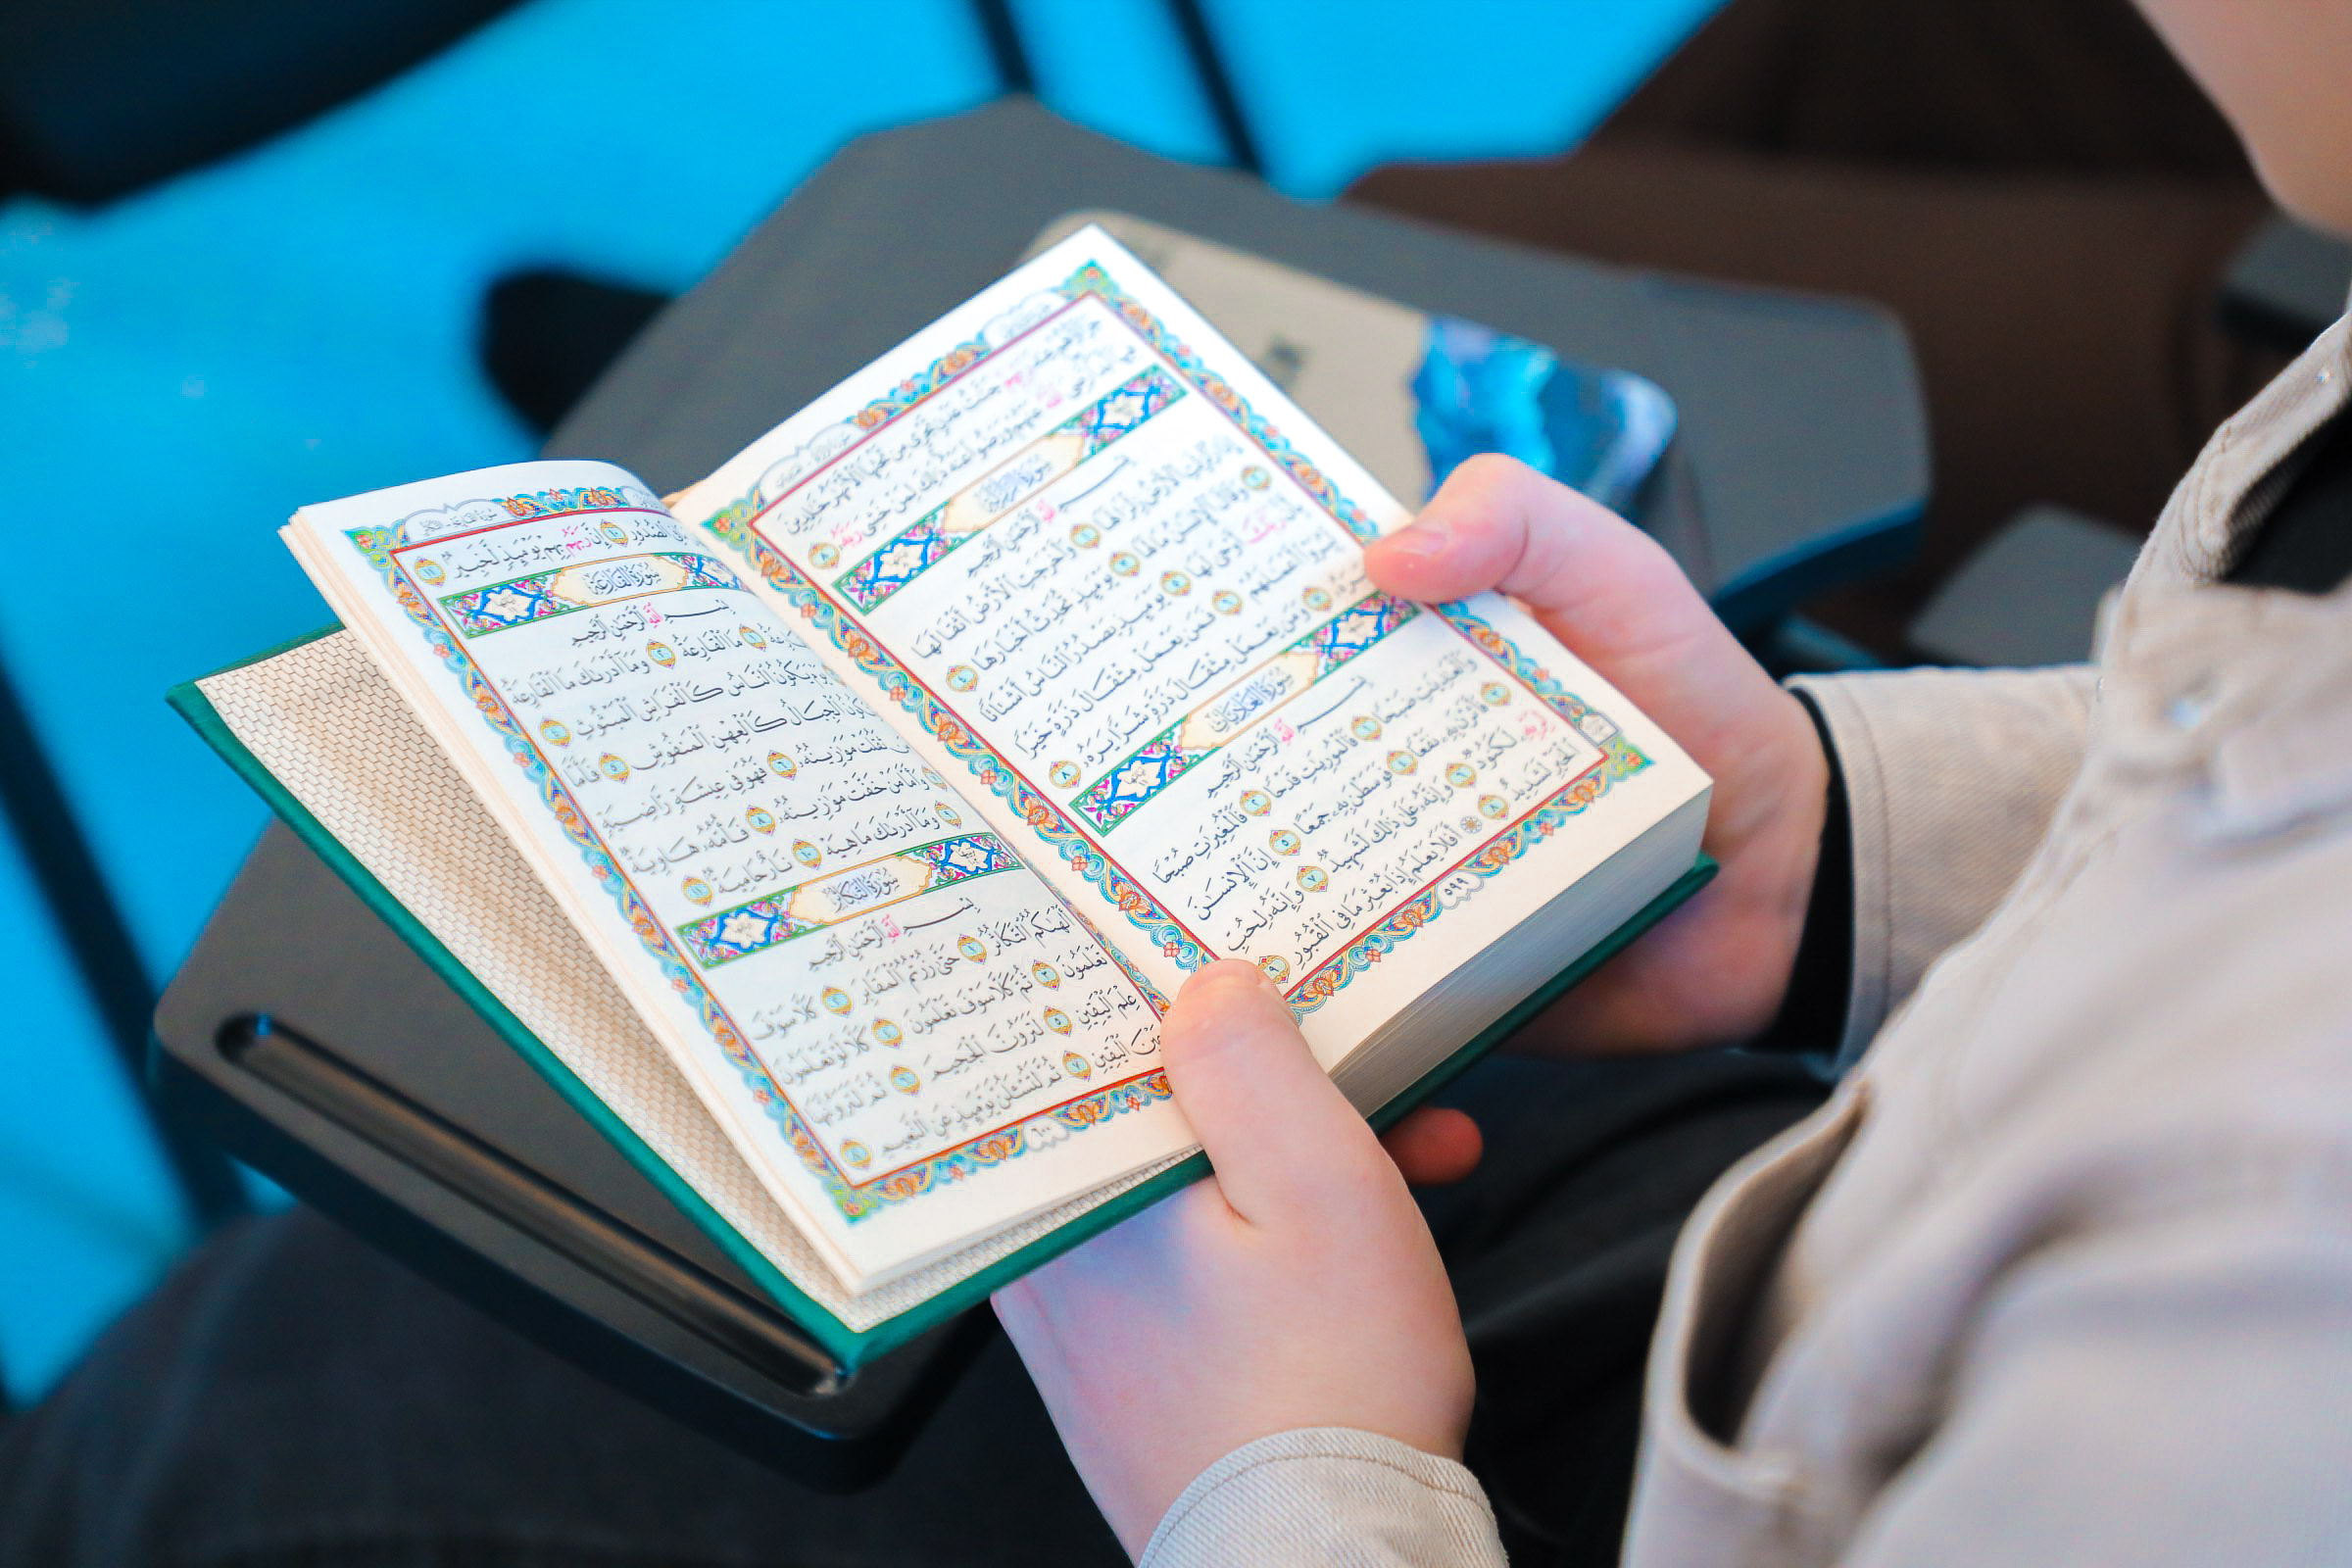 جَزَآؤُهُمْ عِندَ رَبِّهِمْ جَنَّٰتُ عَدْنٍ تَجْرِى مِن تَحْتِهَا ٱلْأَنْهَٰرُ خَٰلِدِينَ
فِيهَآ أَبَدًا رَّضِىَ ٱللَّهُ عَنْهُمْ وَرَضُوا۟ عَنْهُ ذَٰلِكَ لِمَنْ خَشِىَ رَبَّهُۥ ٨
سُورَةُ الزَّلْزَلَةِ
بِسْمِ ٱللَّهِ ٱلرَّحْمَٰنِ ٱلرَّحِيمِ
إِذَا زُلْزِلَتِ ٱلْأَرْضُ زِلْزَالَهَا ١ وَأَخْرَجَتِ ٱلْأَرْضُ أَثْقَالَهَا
٢ وَقَالَ ٱلْإِنسَٰنُ مَا لَهَا ٣ يَوْمَئِذٍ تُحَدِّثُ أَخْبَارَهَا ٤
بِأَنَّ رَبَّكَ أَوْحَىٰ لَهَا ٥ يَوْمَئِذٍ يَصْدُرُ ٱلنَّاسُ أَشْتَاتًا
لِّيُرَوْا۟ أَعْمَٰلَهُمْ ٦ فَمَن يَعْمَلْ مِثْقَالَ ذَرَّةٍ خَيْرًا
يَرَهُۥ ٧ وَمَن يَعْمَلْ مِثْقَالَ ذَرَّةٍ شَرًّا يَرَهُۥ ٨
سُورَةُ العَادِيَاتِ
بِسْمِ ٱللَّهِ ٱلرَّحْمَٰنِ ٱلرَّحِيمِ
وَٱلْعَٰدِيَٰتِ ضَبْحًا ١ فَٱلْمُورِيَٰتِ قَدْحًا ٢ فَٱلْمُغِيرَٰتِ صُبْحًا
٣ فَأَثَرْنَ بِهِۦ نَقْعًا ٤ فَوَسَطْنَ بِهِۦ جَمْعًا ٥ إِنَّ ٱلْإِنسَٰنَ
لِرَبِّهِۦ لَكَنُودٌ ٦ وَإِنَّهُۥ عَلَىٰ ذَٰلِكَ لَشَهِيدٌ ٧ وَإِنَّهُۥ لِحُبِّ
ٱلْخَيْرِ لَشَدِيدٌ ٨ ۞ أَفَلَا يَعْلَمُ إِذَا بُعْثِرَ مَا فِى ٱلْقُبُورِ ٩
٥٩٩
سورة القارعة - التكاثر
فِى ٱلصُّدُورِ ١٠ إِنَّ رَبَّهُم بِهِمْ يَوْمَئِذٍ لَّخَبِيرٌۢ ١١
سُورَةُ القَارِعَةِ
بِسْمِ ٱللَّهِ ٱلرَّحْمَٰنِ ٱلرَّحِيمِ
ٱلْقَارِعَةُ ١ مَا ٱلْقَارِعَةُ ٢ وَمَآ أَدْرَىٰكَ مَا ٱلْقَارِعَةُ
يَوْمَ يَكُونُ ٱلنَّاسُ كَٱلْفَرَاشِ ٱلْمَبْثُوثِ ٤
وَتَكُونُ ٱلْجِبَالُ كَٱلْعِهْنِ ٱلْمَنفُوشِ ٥ فَأَمَّا
ثَقُلَتْ مَوَٰزِينُهُۥ ٦ فَهُوَ فِى عِيشَةٍ رَّاضِيَةٍ
وَأَمَّا مَنْ خَفَّتْ مَوَٰزِينُهُۥ ٨ فَأُمُّهُۥ هَاوِيَةٌ
٩ وَمَآ أَدْرَىٰكَ مَا هِيَهْ ١٠ نَارٌ حَامِيَةٌۢ ١١
سُورَةُ التَّكَاثُرِ
بِسْمِ ٱللَّهِ ٱلرَّحْمَٰنِ ٱلرَّحِيمِ
أَلْهَىٰكُمُ ٱلتَّكَاثُرُ ١ حَتَّىٰ زُرْتُمُ ٱلْمَقَابِرَ ٢ كَلَّا سَوْفَ
تَعْلَمُونَ ٣ ثُمَّ كَلَّا سَوْفَ تَعْلَمُونَ ٤ كَلَّا لَوْ تَعْلَمُونَ
عِلْمَ ٱلْيَقِينِ ٥ لَتَرَوُنَّ ٱلْجَحِيمَ ٦ ثُمَّ لَتَرَوُنَّهَا
عَيْنَ ٱلْيَقِينِ ٧ ثُمَّ لَتُسْـَٔلُنَّ يَوْمَئِذٍ عَنِ ٱلنَّعِيمِ ٨
٦٠٠